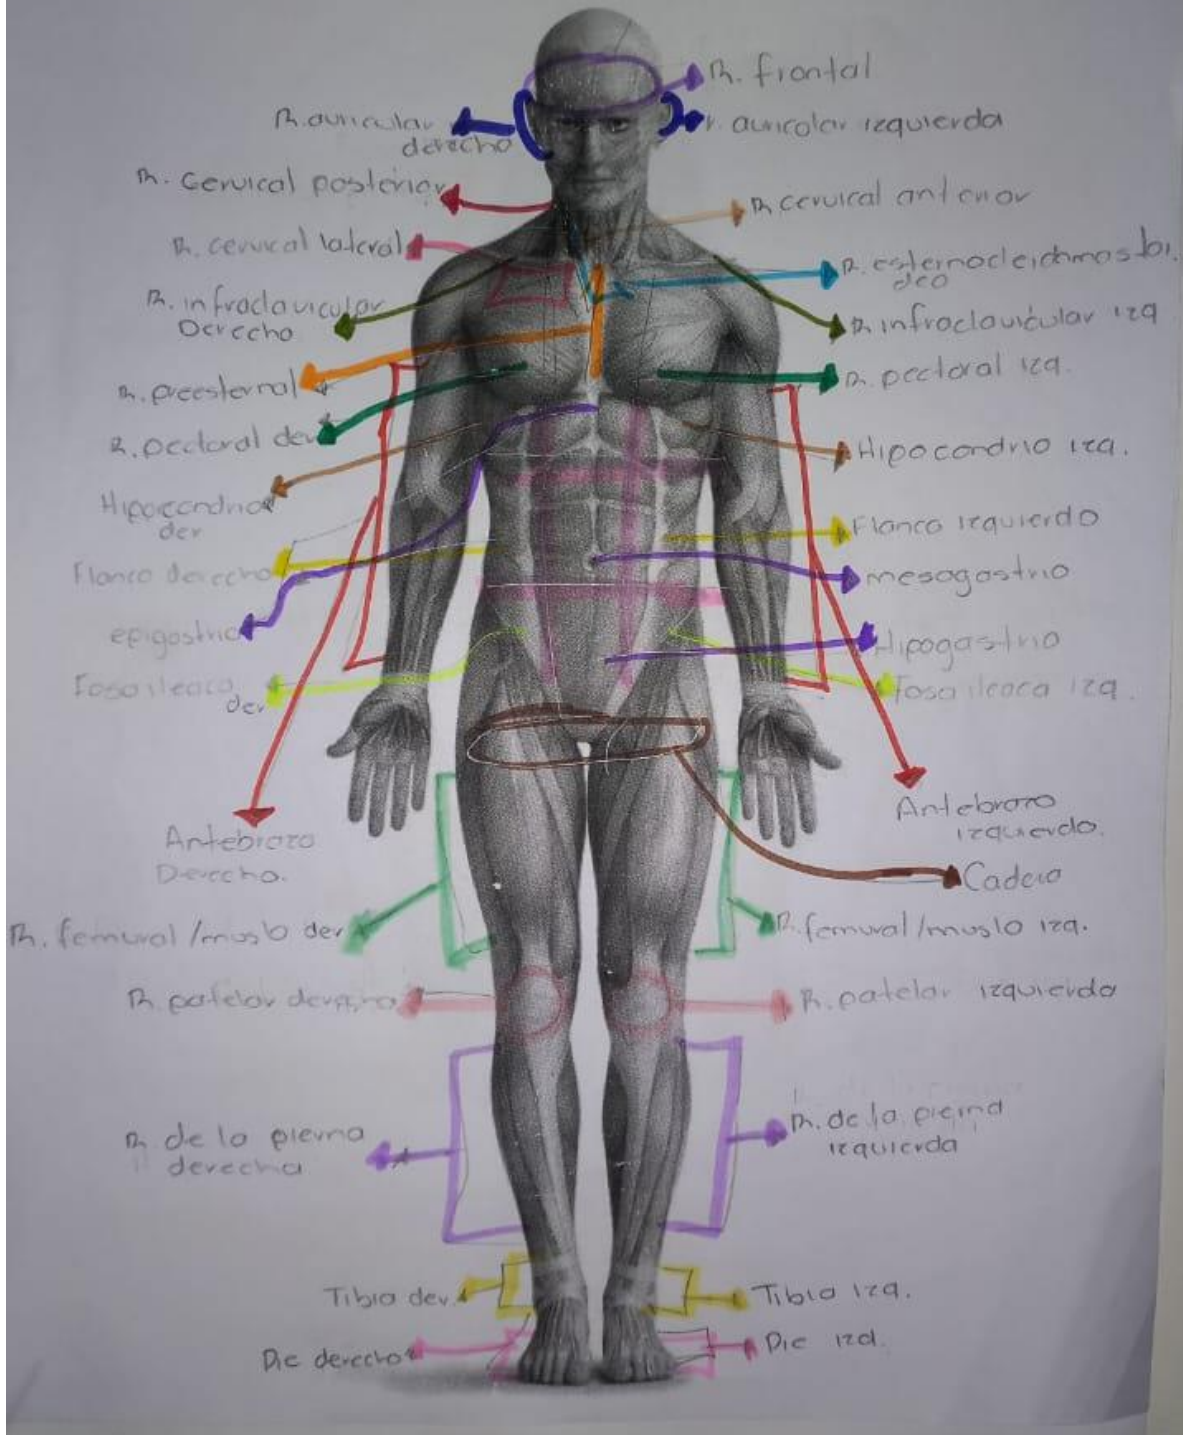 R. frontal
R. auricular
derecho
r. auricolar izquierda
R. Cervical posterior
R cervical anterior
R. cervical lateral
R. esternocleidomastoi.
deo
R. infraclavicular
Derecho
R infraclavicular izq
R. preesternal
R. pectoral izq.
R. pectoral der
Hipocondrio izq.
Hipocondrio
der
Flanco izquierdo
Flanco derecho
mesogastrio
epigastrio
Hipogastrio
Fosa ileaca
der
Fosa ileaca izq.
Antebrazo
izquierdo.
Antebrazo
Derecho.
Cadera
R. femural/muslo der
R. femural/muslo izq.
R. patelar derecho
R. patelar izquierda
R. de la pierna
derecha
R. de la pierna
izquierda
Tibia der.
Tibia izq.
Pie derecho
Pie izq.